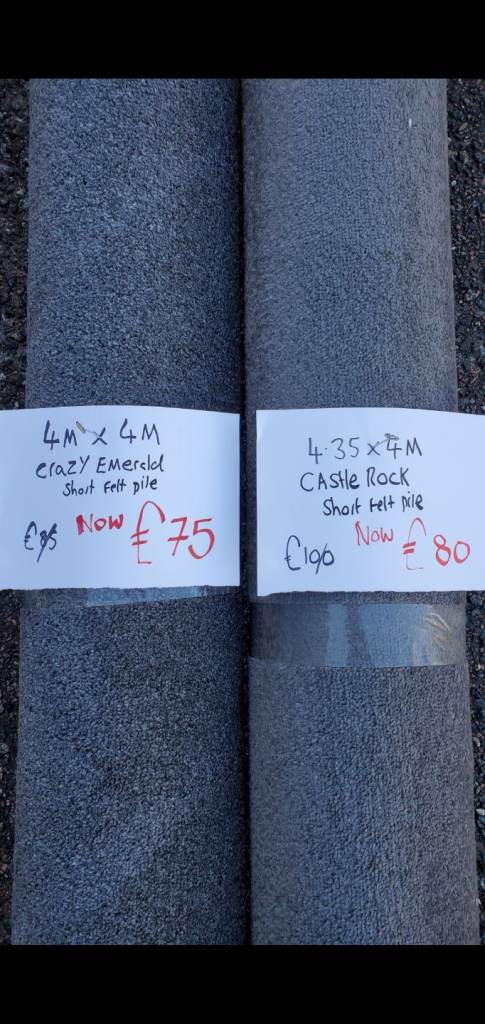 4M x 4M
Crazy Emereld
Short Felt pile
£85 Now £75
4.35 x 4M
CAStle Rock
Short Felt pile
£100 Now £80